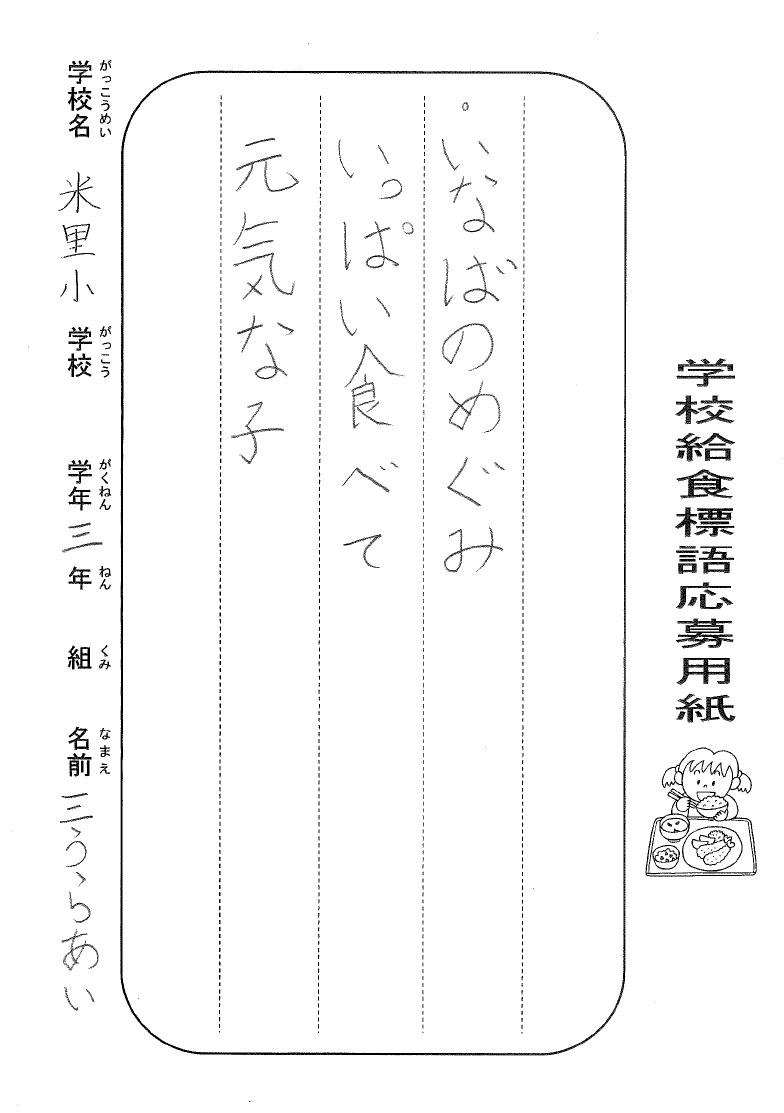 学校給食標語応募用紙
。
いなばのめぐみ
いっぱい食べて
元気な子
学校名 米里小 学校 学年 三 年 組 名前 三うらあい
がっこうめい がっこう がくねん ねん くみ なまえ